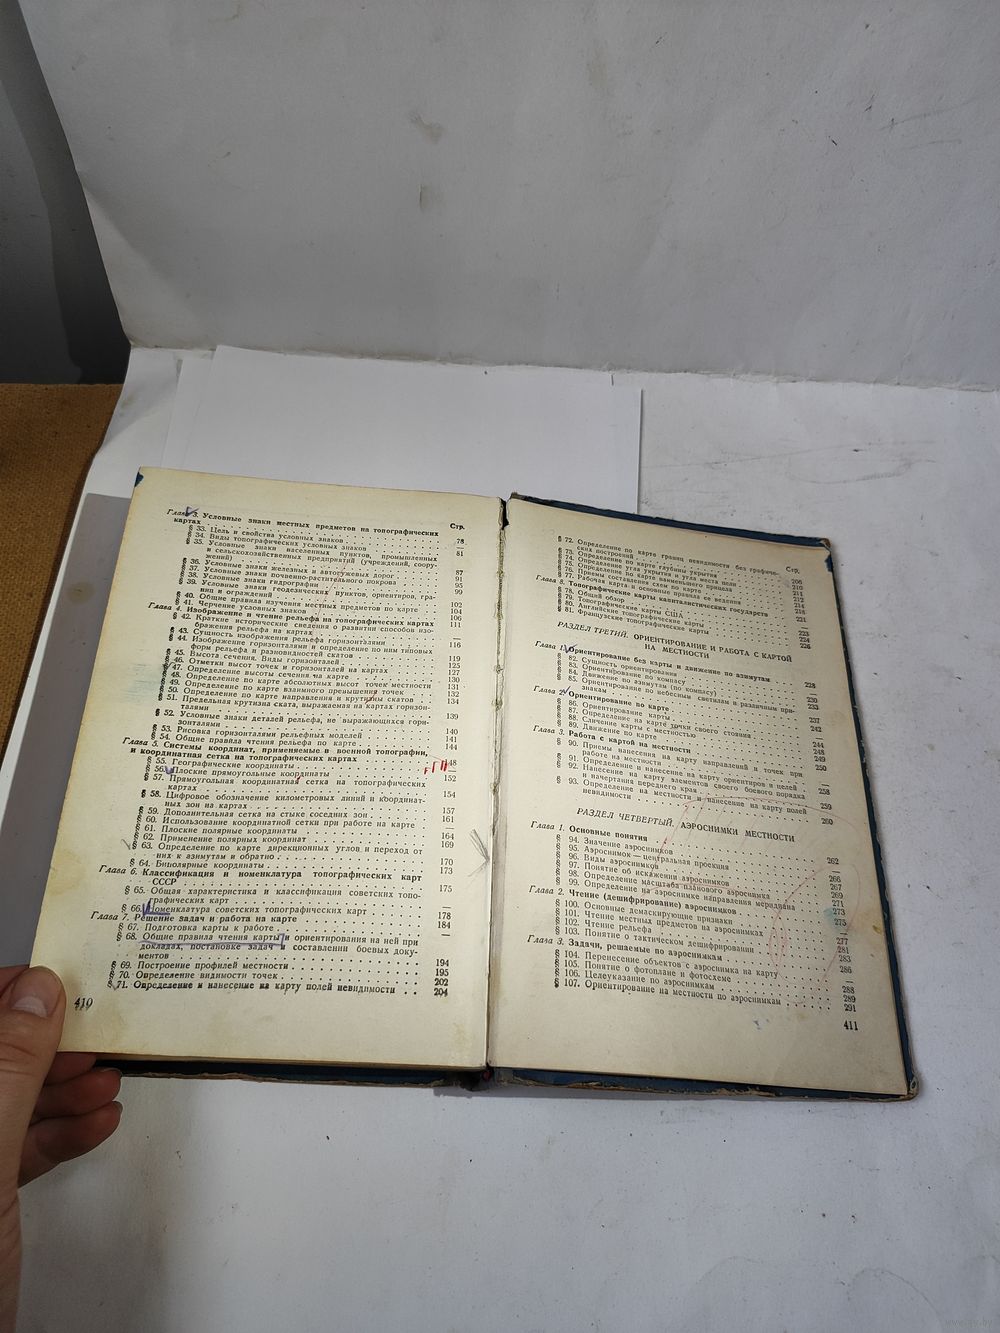 Глава 3. Условные знаки местных предметов на топографических
картах
Стр.
78
§ 33. Цель и свойства условных знаков
—
§ 34. Виды топографических условных знаков
81
§ 35. Условные знаки населенных пунктов, промышленных
и сельскохозяйственных предприятий (учреждений, соору-
жений)
87
§ 36. Условные знаки железных и автогужевых дорог
91
§ 37. Условные знаки почвенно-растительного покрова
95
§ 38. Условные знаки гидрографии
99
§ 39. Условные знаки геодезических пунктов, ориентиров, гра-
ниц и ограждений
102
§ 40. Общие правила изучения местных предметов по карте
104
§ 41. Черчение условных знаков
106
Глава 4. Изображение и чтение рельефа на топографических картах
111
§ 42. Краткие исторические сведения о развитии способов изо-
бражения рельефа на картах
—
§ 43. Сущность изображения рельефа горизонталями
116
§ 44. Изображение горизонталями и определение по ним типовых
форм рельефа и разновидностей скатов
119
§ 45. Высота сечения. Виды горизонталей
125
§ 46. Отметки высот точек и горизонталей на картах
127
§ 47. Определение высоты сечения на карте
130
§ 48. Определение по карте абсолютных высот точек местности
131
§ 49. Определение по карте взаимного превышения точек
132
§ 50. Определение по карте направления и крутизны скатов
134
§ 51. Предельная крутизна ската, выражаемая на картах горизон-
талями
139
§ 52. Условные знаки деталей рельефа, не выражающихся гори-
зонталями
140
§ 53. Рисовка горизонталями рельефных моделей
141
§ 54. Общие правила чтения рельефа по карте
144
Глава 5. Системы координат, применяемые в военной топографии,
и координатная сетка на топографических картах
148
§ 55. Географические координаты
—
§ 56. Плоские прямоугольные координаты
152
§ 57. Прямоугольная координатная сетка на топографических
картах
154
§ 58. Цифровое обозначение километровых линий и координат-
ных зон на картах
157
§ 59. Дополнительная сетка на стыке соседних зон
161
§ 60. Использование координатной сетки при работе на карте
§ 61. Плоские полярные координаты
164
§ 62. Применение полярных координат
169
§ 63. Определение по карте дирекционных углов и переход от
них к азимутам и обратно
170
§ 64. Биполярные координаты
173
Глава 6. Классификация и номенклатура топографических карт
СССР
175
§ 65. Общая характеристика и классификация советских топо-
графических карт
—
§ 66. Номенклатура советских топографических карт
178
Глава 7. Решение задач и работа на карте
184
§ 67. Подготовка карты к работе
—
§ 68. Общие правила чтения карты и ориентирования на ней при
докладах, постановке задач и составлении боевых доку-
ментов
194
§ 69. Построение профилей местности
195
§ 70. Определение видимости точек
202
§ 71. Определение и нанесение на карту полей невидимости
204
410
§ 72. Определение по карте границ невидимости без графиче-
ских построений
Стр.
206
§ 73. Определение по карте глубины укрытия
210
§ 74. Определение угла укрытия и угла места цели
211
§ 75. Определение по карте наименьшего прицела
212
§ 76. Приемы составления схем по карте
214
§ 77. Рабочая карта и основные правила ее ведения
218
Глава 8. Топографические карты капиталистических государств
221
§ 78. Общий обзор
—
§ 79. Топографические карты США
223
§ 80. Английские топографические карты
224
§ 81. Французские топографические карты
226
РАЗДЕЛ ТРЕТИЙ. ОРИЕНТИРОВАНИЕ И РАБОТА С КАРТОЙ
НА МЕСТНОСТИ
Глава 1. Ориентирование без карты и движение по азимутам
228
§ 82. Сущность ориентирования
—
§ 83. Ориентирование по компасу
230
§ 84. Движение по азимутам (по компасу)
233
§ 85. Ориентирование по небесным светилам и различным при-
знакам
237
Глава 2. Ориентирование по карте
242
§ 86. Ориентирование карты
—
§ 87. Определение на карте точки своего стояния
244
§ 88. Сличение карты с местностью
248
§ 89. Движение по карте
249
Глава 3. Работа с картой на местности
250
§ 90. Приемы нанесения на карту направлений и точек при
работе на местности
—
§ 91. Определение и нанесение на карту ориентиров и целей
258
§ 92. Нанесение на карту элементов своего боевого порядка
и начертания переднего края
259
§ 93. Определение на местности и нанесение на карту полей
невидимости
260
РАЗДЕЛ ЧЕТВЕРТЫЙ. АЭРОСНИМКИ МЕСТНОСТИ
Глава 1. Основные понятия
262
§ 94. Значение аэроснимков
—
§ 95. Аэроснимок — центральная проекция
266
§ 96. Виды аэроснимков
267
§ 97. Понятие об искажении аэроснимков
269
§ 98. Определение масштаба планового аэроснимка
271
§ 99. Определение на аэроснимке направления меридиана
273
Глава 2. Чтение (дешифрирование) аэроснимков
275
§ 100. Основные демаскирующие признаки
—
§ 101. Чтение местных предметов на аэроснимках
277
§ 102. Чтение рельефа
281
§ 103. Понятие о тактическом дешифрировании
283
Глава 3. Задачи, решаемые по аэроснимкам
286
§ 104. Перенесение объектов с аэроснимка на карту
—
§ 105. Понятие о фотоплане и фотосхеме
288
§ 106. Целеуказание по аэроснимкам
289
§ 107. Ориентирование на местности по аэроснимкам
291
411